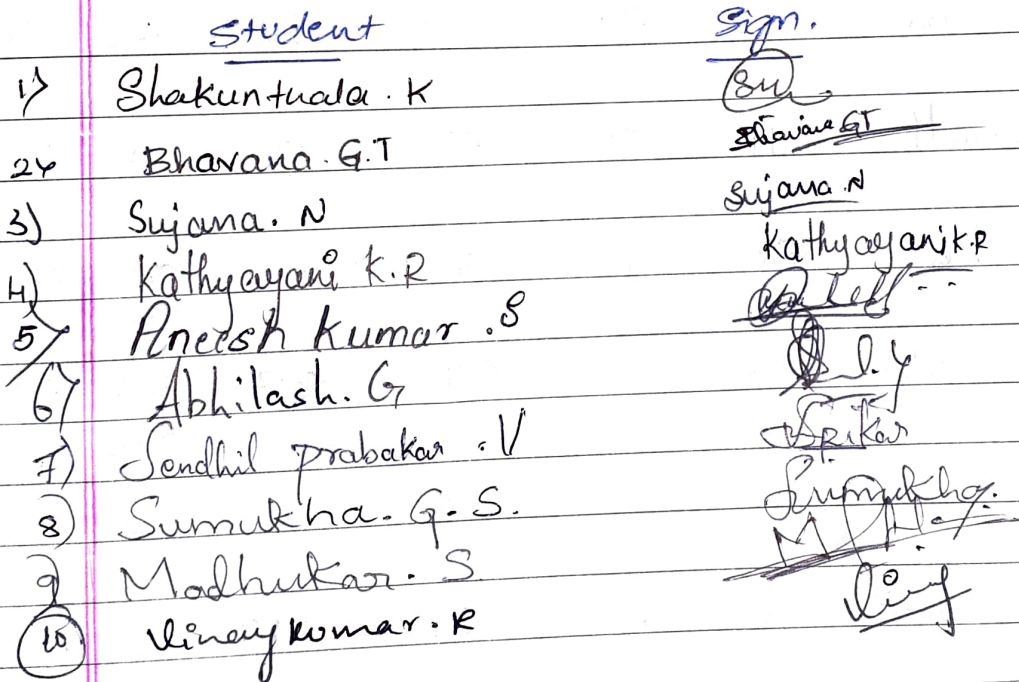 Student Sign.
1) Shakunthala . K Su
2) Bhavana . G.T Bhavana GT
3) Sujana . N Sujana . N
4) Kathyayani K.R Kathyayani K.R
5) Aneesh Kumar . S
6) Abhilash . G
7) Sendhil prabakar . V Srikar
8) Sumukha . G . S . Sumukha .
9) Madhukar . S
10 Vinay Kumar . R Vinay